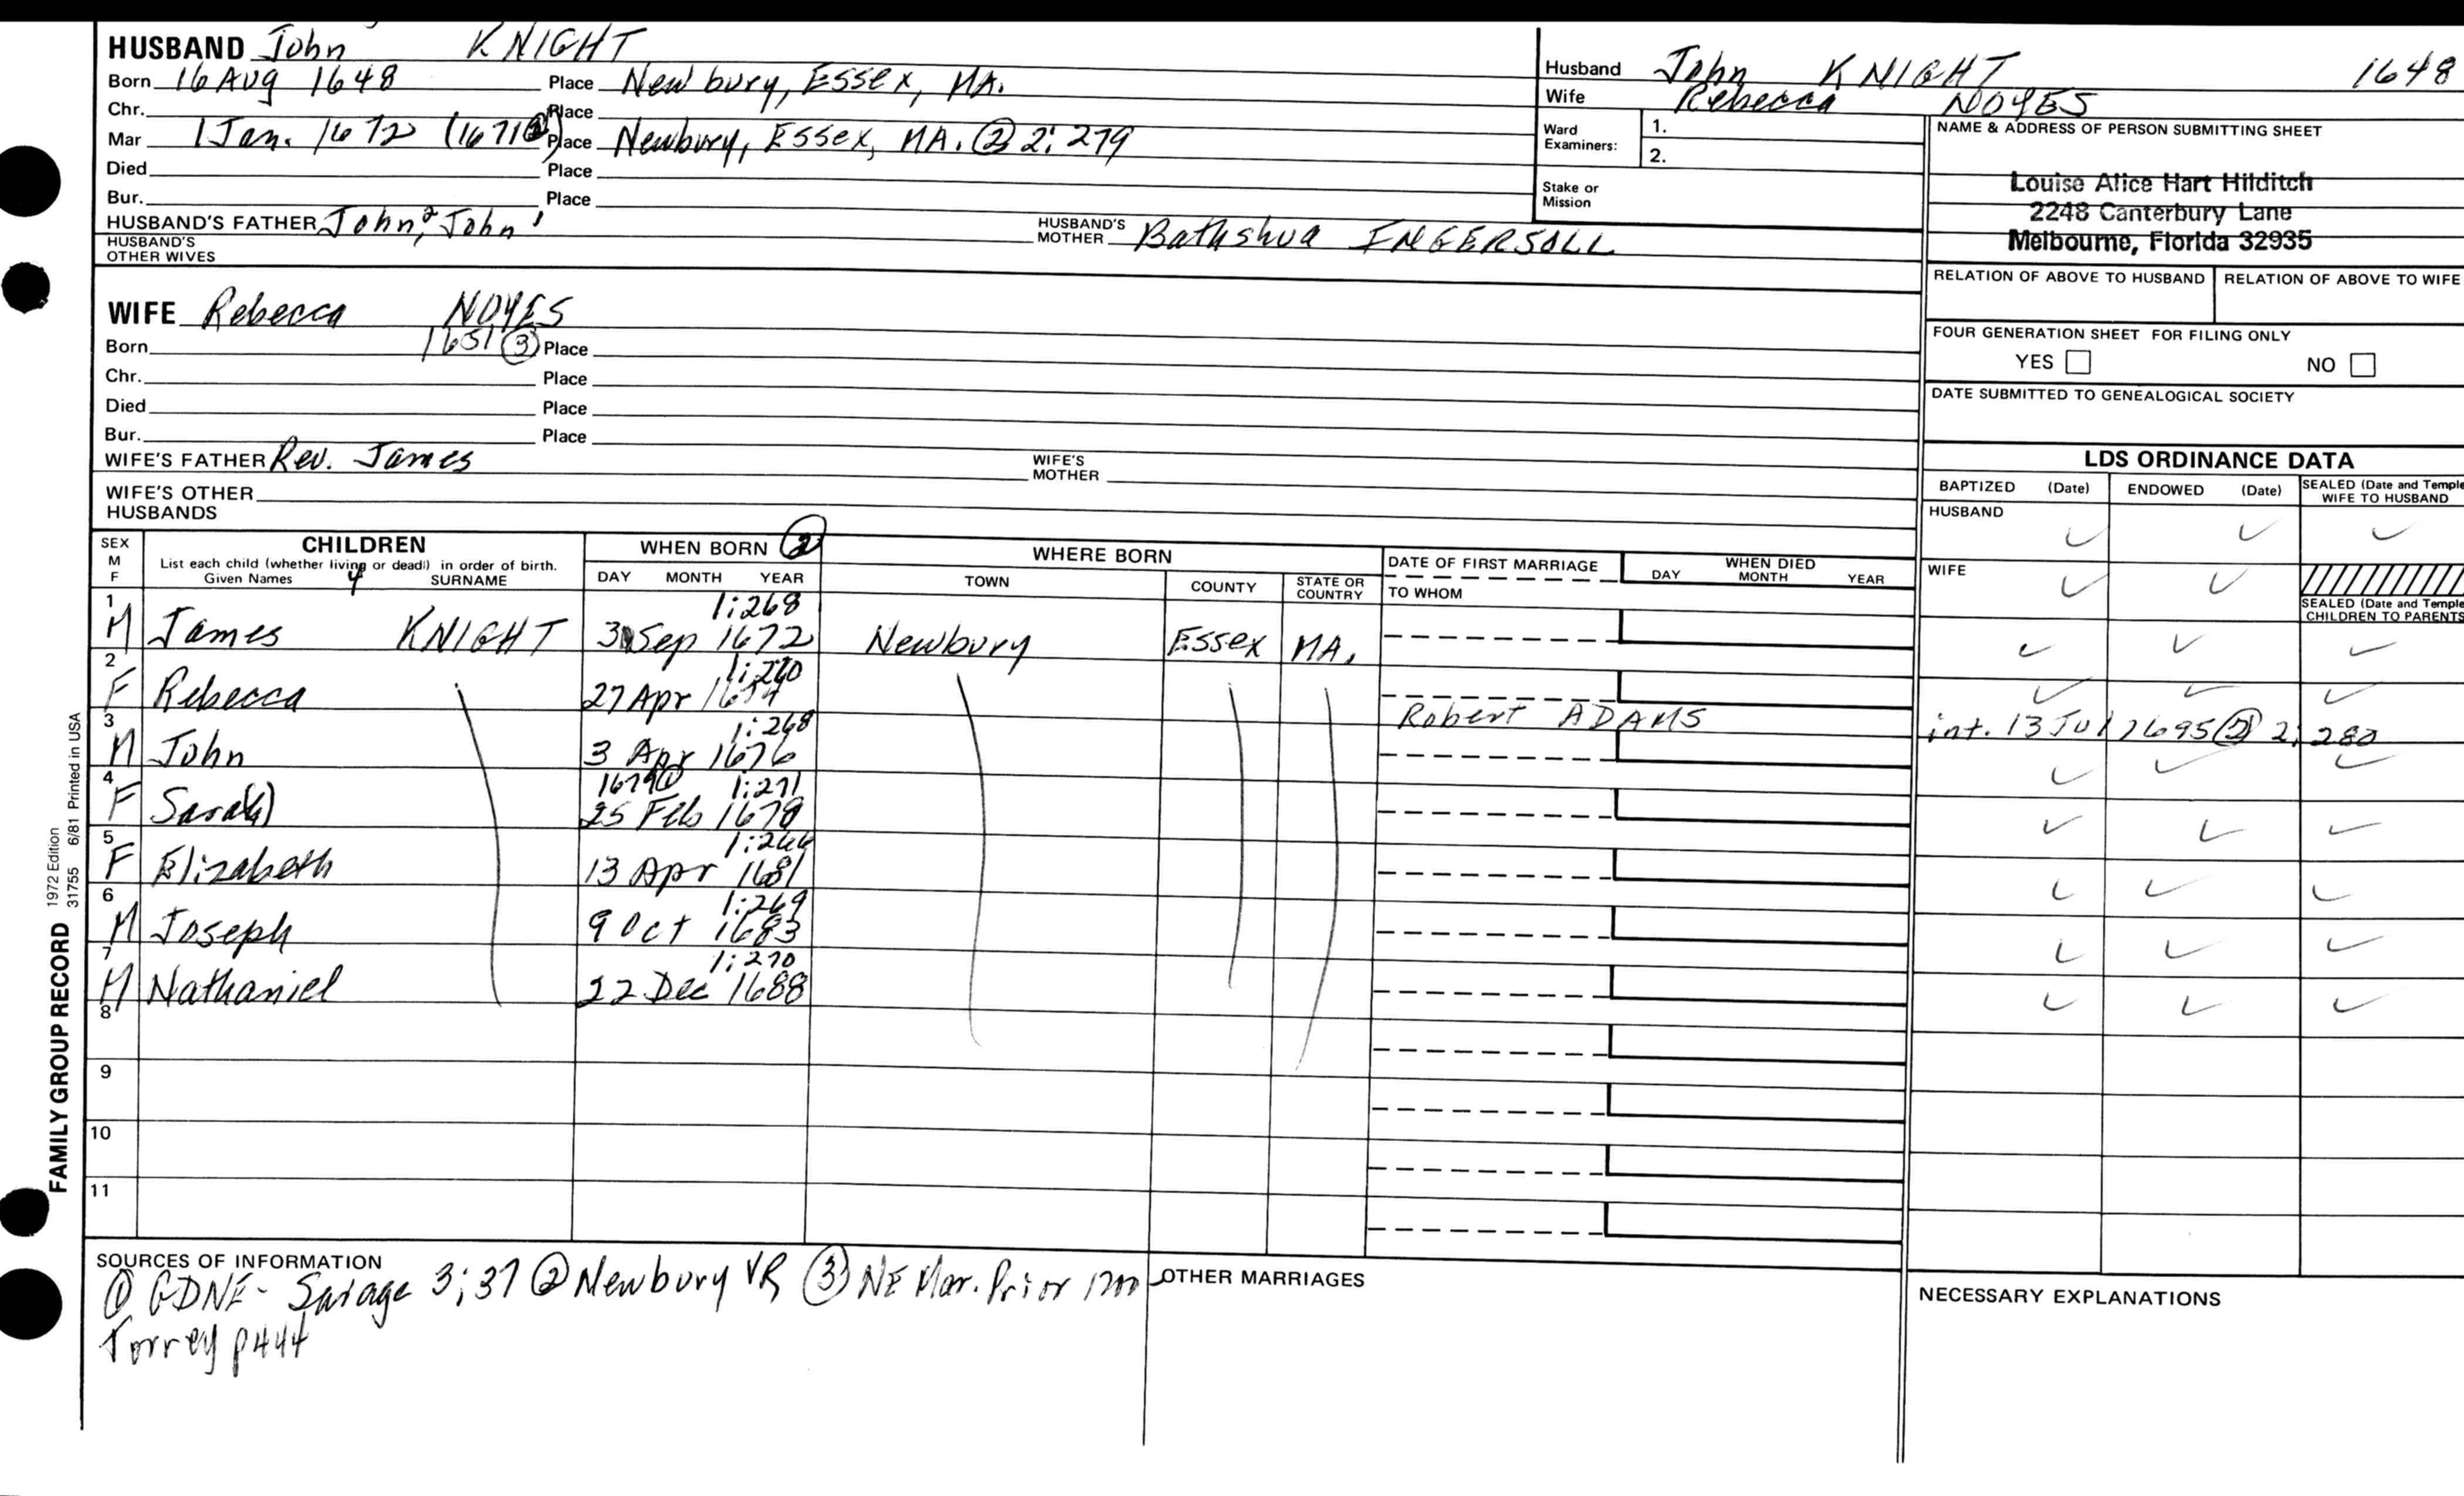 HUSBAND John KNIGHT
Born 16 Aug 1648 Place Newbury, Essex, MA.
Chr. Place
Mar 1 Jan. 1672 (1671②) Place Newbury, Essex, MA. ② 2:279
Died Place
Bur. Place
HUSBAND'S FATHER John,² John¹ HUSBAND'S MOTHER Bathshua INGERSOLL
HUSBAND'S OTHER WIVES
WIFE Rebecca NOYES
Born 1651 ③ Place
Chr. Place
Died Place
Bur. Place
WIFE'S FATHER Rev. James WIFE'S MOTHER
WIFE'S OTHER HUSBANDS
Husband John KNIGHT 1648
Wife Rebecca NOYES
Ward Examiners: 1.
2.
Stake or Mission
NAME & ADDRESS OF PERSON SUBMITTING SHEET
Louise Alice Hart Hilditch
2248 Canterbury Lane
Melbourne, Florida 32935
RELATION OF ABOVE TO HUSBAND RELATION OF ABOVE TO WIFE
FOUR GENERATION SHEET FOR FILING ONLY
YES NO
DATE SUBMITTED TO GENEALOGICAL SOCIETY
LDS ORDINANCE DATA
BAPTIZED (Date) ENDOWED (Date) SEALED (Date and Temple WIFE TO HUSBAND
HUSBAND
WIFE
SEALED (Date and Temple CHILDREN TO PARENTS
SEX M F
CHILDREN
List each child (whether living or dead) in order of birth.
Given Names SURNAME
WHEN BORN ②
DAY MONTH YEAR
WHERE BORN
TOWN COUNTY STATE OR COUNTRY
DATE OF FIRST MARRIAGE
TO WHOM
WHEN DIED
DAY MONTH YEAR
1 1:268
M James KNIGHT 3 Sep 1672 Newbury Essex MA.
2 1:270
F Rebecca 27 Apr 1674 Robert ADAMS int. 13 Jul 1695 ② 2:280
3 1:268
M John 3 Apr 1676
4 1679① 1:271
F Sara(h) 25 Feb 1678
5 1:266
F Elizabeth 13 Apr 1681
6 1:269
M Joseph 9 Oct 1683
7 1:270
M Nathaniel 22 Dec 1688
8
9
10
11
FAMILY GROUP RECORD 1972 Edition
31755 6/81 Printed in USA
SOURCES OF INFORMATION
① GDNE- Savage 3:37 ② Newbury VR ③ NE Mar. Prior 1700
Torrey p444
OTHER MARRIAGES
NECESSARY EXPLANATIONS